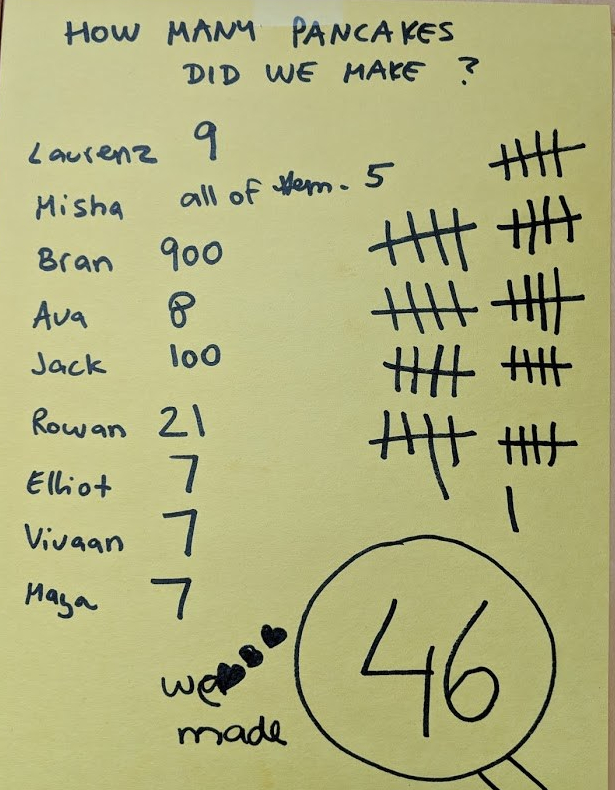 HOW MANY PANCAKES
DID WE MAKE ?
Laurenz 9
Misha all of them. 5
Bran 900
Ava 8
Jack 100
Rowan 21
Elliot 7
Vivaan 7
Maya 7
46
we
made